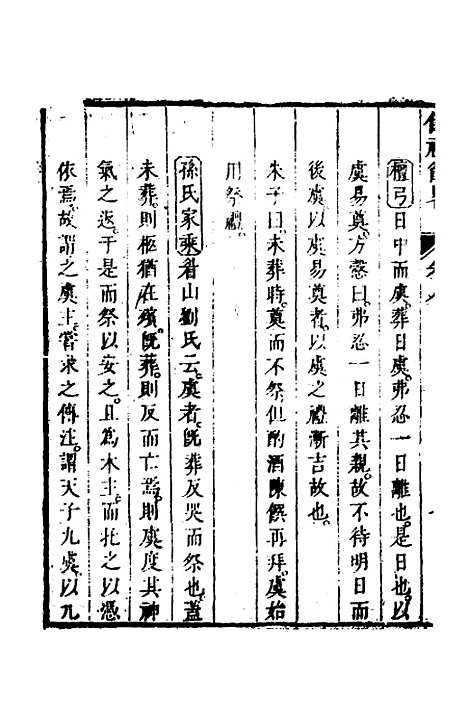 檀弓日中而虞葬日虞弗忍一日離也是日也以
虞易奠方慤曰弗忍一日離其親故不待明日而
後虞以虞易奠者以虞之禮漸吉故也
朱子曰未葬時奠而不祭但酌酒陳饌再拜虞始
用祭禮
孫氏家乘眉山劉氏云虞者旣葬反哭而祭也蓋
未葬則柩猶在殯旣葬則反而亡焉則虞度其神
氣之返于是而祭以安之且爲木主而托之以憑
依焉故謂之虞主嘗求之傳注謂天子九虞以九